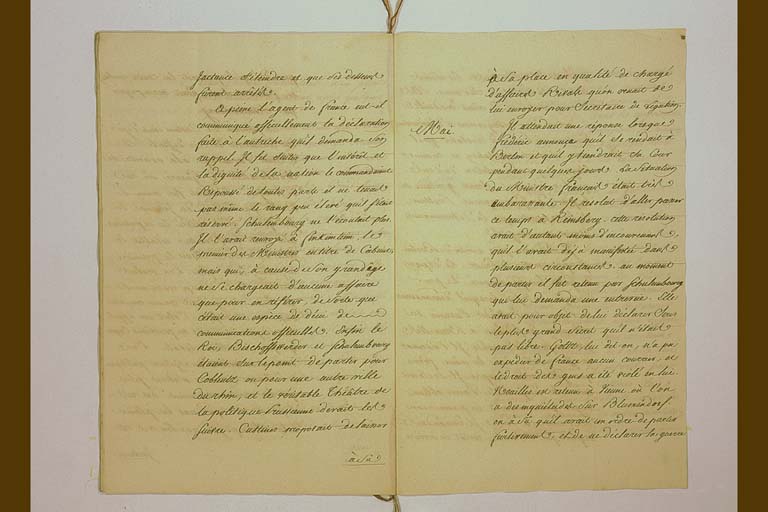 jactance s'étendre et que ses desseins
furent arrêtés.
A peine l'agent de france eut-il
communiqué officiellement la déclaration
faite à l'autriche qu'il demanda son
rappel. Il fut que l'intérêt et
la dignité de sa nation le commandaient
Repoussé de toutes parts il ne tenait
pas même le rang peu élevé qu'il s'était
réservé. Schulembourg ne l'écoutait plus
Il l'avait renvoyé à finkinstein, le
premier des Ministres en titre de Cabinet
mais qui, à cause de son grand âge
ne se chargeait d'aucune affaire
que pour en référer, de sorte que
c'était une espèce de de
communications officielles. Enfin le
Roi, Bischoffswerder et Schulembourg
étaient sur le point de partir pour
Coblentz ou pour une autre ville
du rhin, et le véritable théâtre de
la politique Prussienne devait les
suivre. Custines proposait de laisser
à sa
à sa place en qualité de chargé
d'affaires Rivals qu'on venait de
lui envoyer pour Secrétaire de légation.
Mai.
Il attendait une réponse lorsque
frédéric annonça qu'il se rendait à
Berlin et qu'il y tiendrait sa Cour
pendant quelques jours. La situation
du Ministre français était très
embarrassante. Il résolut d'aller passer
ce temps à Reinsberg. cette résolution
avait d'autant moins d'inconvénient
qu'il l'avait déjà manifestée dans
plusieurs circonstances. au moment
de partir il fut retenu par Schulembourg
qui lui demanda une entrevue. Elle
avait pour objet de lui déclarer sous
le plus grand secret qu'il n'était
pas libre. Goltz, lui dit-on, n'a pu
expédier de france aucun courier, et
le droit des gens a été violé en lui.
Noailles est retenu à Vienne où l'on
a des inquiétudes sur Blumendorf.
on a su qu'il avait un ordre de partir
furtivement, et de ne déclarer la guerre